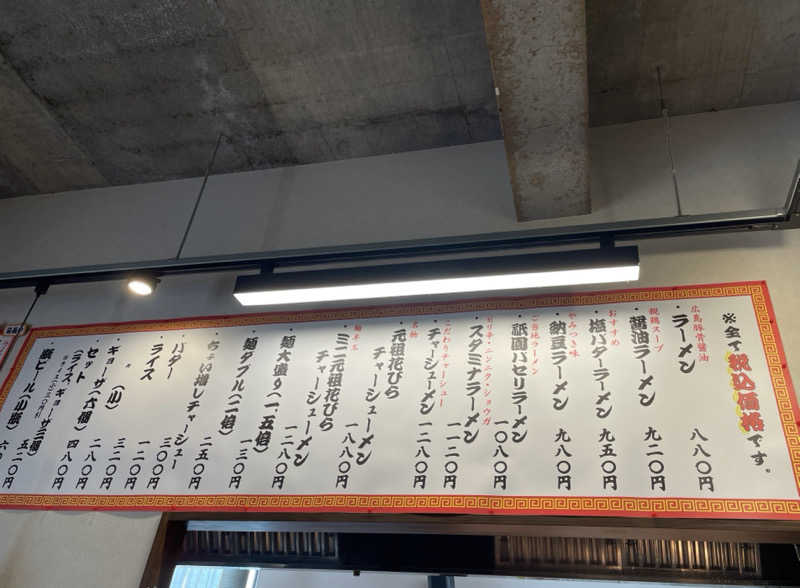 ※全て税込価格です。
広島豚骨醤油
ラーメン 八八〇円
親鶏スープ
醤油ラーメン 九二〇円
おすすめ
塩バターラーメン 九五〇円
やみつき味
納豆ラーメン 九八〇円
ご当地ラーメン
祇園パセリラーメン 一〇八〇円
ピリ辛・ニンニク・ショウガ
スタミナラーメン 一一二〇円
こだわりチャーシュー
チャーシューメン 一二八〇円
名物
元祖花びら
チャーシューメン 一八八〇円
麺半玉
ミニ元祖花びら
チャーシューメン 一八八〇円
麺大盛り(一、五倍) 一二八〇円
麺ダブル(二倍) 一三〇円
ちょい増しチャーシュー 二五〇円
バター 一〇〇円
ライス
ギョーザ(小) 三二〇円
〃 (六個) 二八〇円
セット
(ライス、ギョーザ三個) 四八〇円
瓶ビール(小瓶) 五二〇円